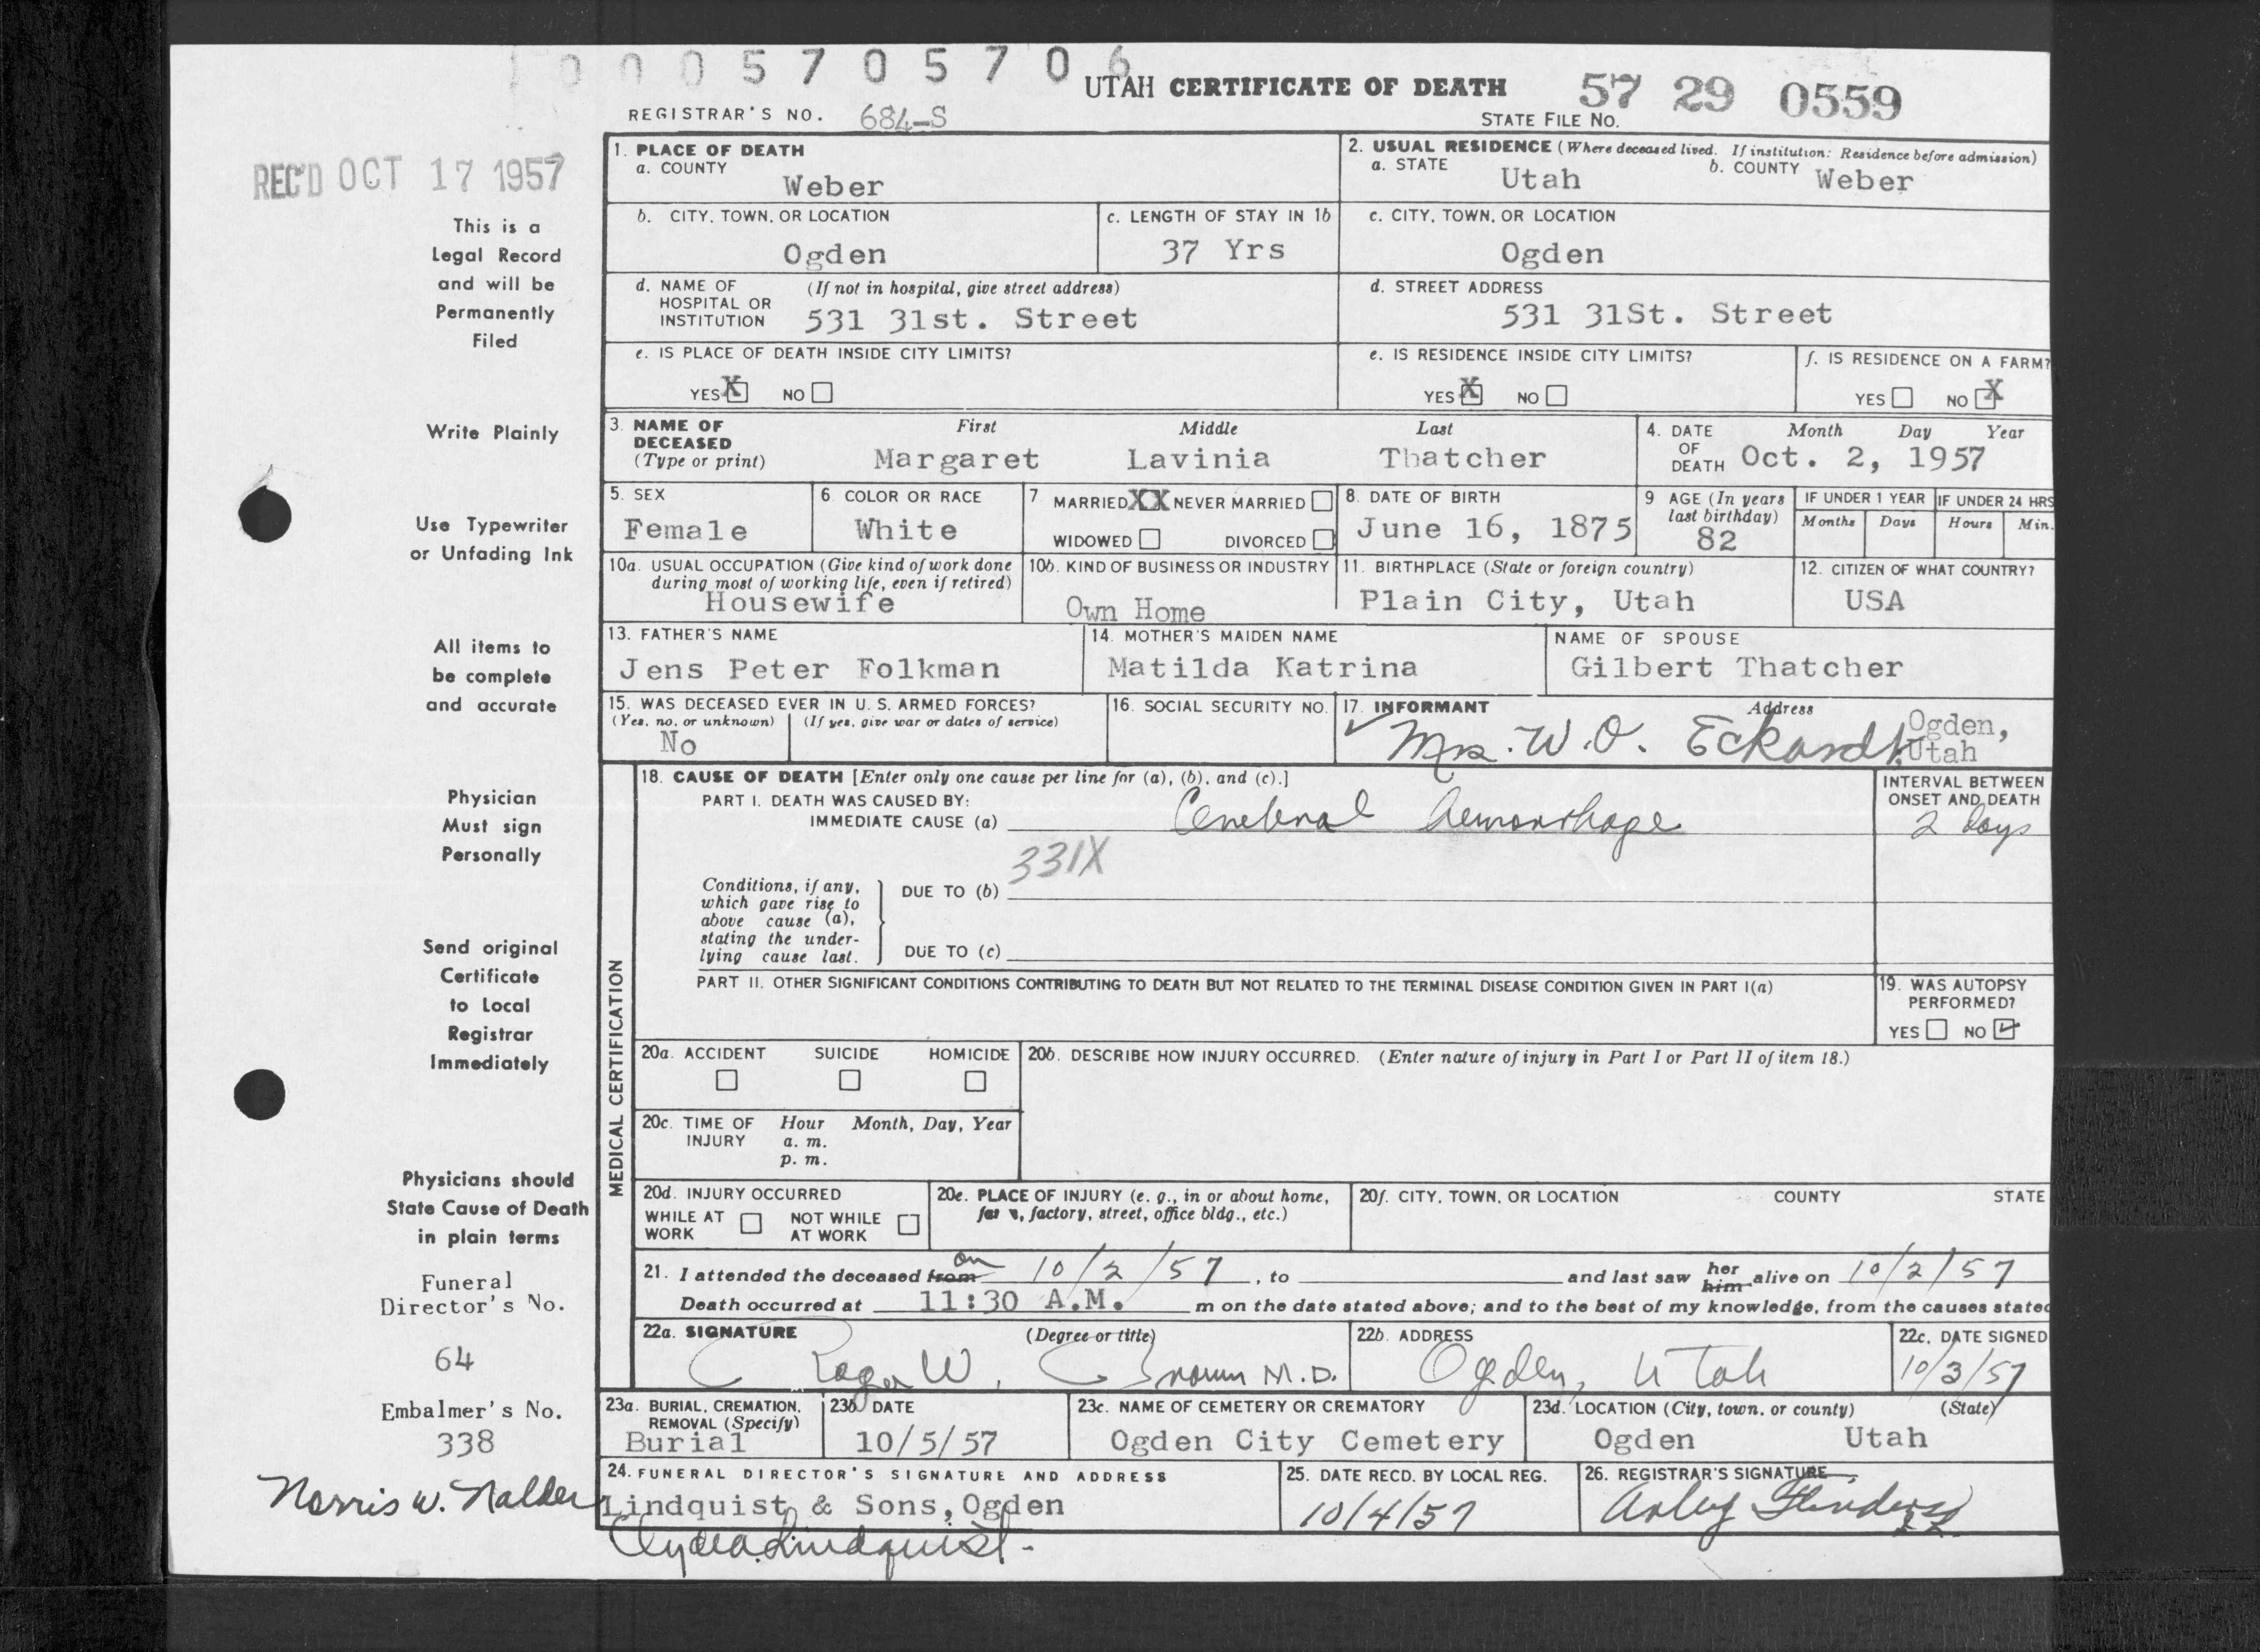 0005705706
UTAH CERTIFICATE OF DEATH
57 29 0559
REGISTRAR'S NO. 684-S
STATE FILE NO.
REC'D OCT 17 1957
This is a
Legal Record
and will be
Permanently
Filed
Write Plainly
Use Typewriter
or Unfading Ink
All items to
be complete
and accurate
Physician
Must sign
Personally
Send original
Certificate
to Local
Registrar
Immediately
Physicians should
State Cause of Death
in plain terms
Funeral
Director's No.
64
Embalmer's No.
338
Norris W. Nalder
1. PLACE OF DEATH
a. COUNTY
Weber
2. USUAL RESIDENCE (Where deceased lived. If institution: Residence before admission)
a. STATE Utah b. COUNTY Weber
b. CITY, TOWN, OR LOCATION
Ogden
c. LENGTH OF STAY IN 1b
37 Yrs
c. CITY, TOWN, OR LOCATION
Ogden
d. NAME OF HOSPITAL OR INSTITUTION (If not in hospital, give street address)
531 31st. Street
d. STREET ADDRESS
531 31St. Street
e. IS PLACE OF DEATH INSIDE CITY LIMITS?
YES X NO
e. IS RESIDENCE INSIDE CITY LIMITS?
YES X NO
f. IS RESIDENCE ON A FARM?
YES NO X
3. NAME OF DECEASED (Type or print)
First Middle Last
Margaret Lavinia Thatcher
4. DATE OF DEATH
Month Day Year
Oct. 2, 1957
5. SEX
Female
6. COLOR OR RACE
White
7 MARRIED XX NEVER MARRIED
WIDOWED DIVORCED
8. DATE OF BIRTH
June 16, 1875
9 AGE (In years last birthday)
82
IF UNDER 1 YEAR
Months Days
IF UNDER 24 HRS
Hours Min.
10a. USUAL OCCUPATION (Give kind of work done
during most of working life, even if retired)
Housewife
10b. KIND OF BUSINESS OR INDUSTRY
Own Home
11. BIRTHPLACE (State or foreign country)
Plain City, Utah
12. CITIZEN OF WHAT COUNTRY?
USA
13. FATHER'S NAME
Jens Peter Folkman
14. MOTHER'S MAIDEN NAME
Matilda Katrina
NAME OF SPOUSE
Gilbert Thatcher
15. WAS DECEASED EVER IN U. S. ARMED FORCES?
(Yes, no, or unknown) (If yes, give war or dates of service)
No
16. SOCIAL SECURITY NO.
17. INFORMANT Address
Mrs. W. O. Eckardt Ogden,
Utah
MEDICAL CERTIFICATION
18. CAUSE OF DEATH [Enter only one cause per line for (a), (b), and (c).]
PART I. DEATH WAS CAUSED BY:
IMMEDIATE CAUSE (a) Cerebral hemorrhage
INTERVAL BETWEEN
ONSET AND DEATH
2 days
331X
Conditions, if any,
which gave rise to
above cause (a),
stating the under-
lying cause last.
DUE TO (b)
DUE TO (c)
PART II. OTHER SIGNIFICANT CONDITIONS CONTRIBUTING TO DEATH BUT NOT RELATED TO THE TERMINAL DISEASE CONDITION GIVEN IN PART I(a)
19. WAS AUTOPSY
PERFORMED?
YES NO
20a. ACCIDENT SUICIDE HOMICIDE
20b. DESCRIBE HOW INJURY OCCURRED. (Enter nature of injury in Part I or Part II of item 18.)
20c. TIME OF INJURY
Hour Month, Day, Year
a. m.
p. m.
20d. INJURY OCCURRED
WHILE AT WORK NOT WHILE AT WORK
20e. PLACE OF INJURY (e. g., in or about home,
factory, street, office bldg., etc.)
20f. CITY, TOWN, OR LOCATION COUNTY STATE
21. I attended the deceased from on 10/2/57, to and last saw her him alive on 10/2/57
Death occurred at 11:30 A.M. m on the date stated above; and to the best of my knowledge, from the causes stated
22a. SIGNATURE (Degree or title)
Roger W. Brown M.D.
22b. ADDRESS
Ogden, Utah
22c. DATE SIGNED
10/3/57
23a. BURIAL, CREMATION,
REMOVAL (Specify)
Burial
23b. DATE
10/5/57
23c. NAME OF CEMETERY OR CREMATORY
Ogden City Cemetery
23d. LOCATION (City, town, or county) (State)
Ogden Utah
24. FUNERAL DIRECTOR'S SIGNATURE AND ADDRESS
Lindquist & Sons, Ogden
Clyde A. Lindquist
25. DATE RECD. BY LOCAL REG.
10/4/57
26. REGISTRAR'S SIGNATURE
Arley Flinders